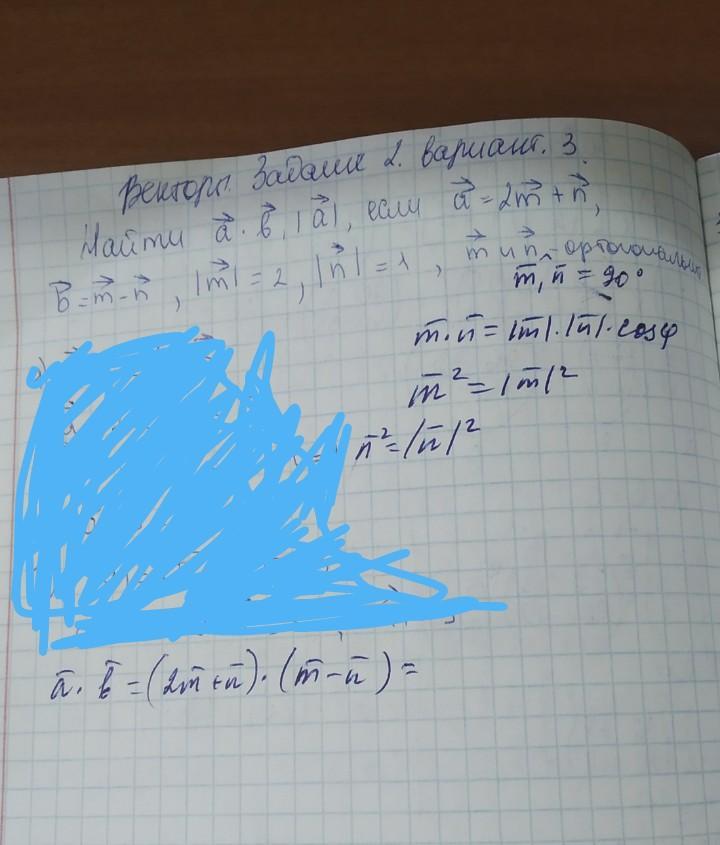 Векторы. Задание 2. вариант. 3.
Найти a⃗ · b⃗, |a⃗|, если a⃗ = 2m⃗ + n⃗,
b⃗ = m⃗ - n⃗, |m⃗| = 2, |n⃗| = 1, m⃗ и n⃗ - ортогональны
m̅, n̅ = 90°
m̅ · n̅ = |m̅| · |n̅| · cosφ
m̅² = |m̅|²
n̅² = |n̅|²
a̅ · b̅ = (2m̅ + n̅) · (m̅ - n̅) =